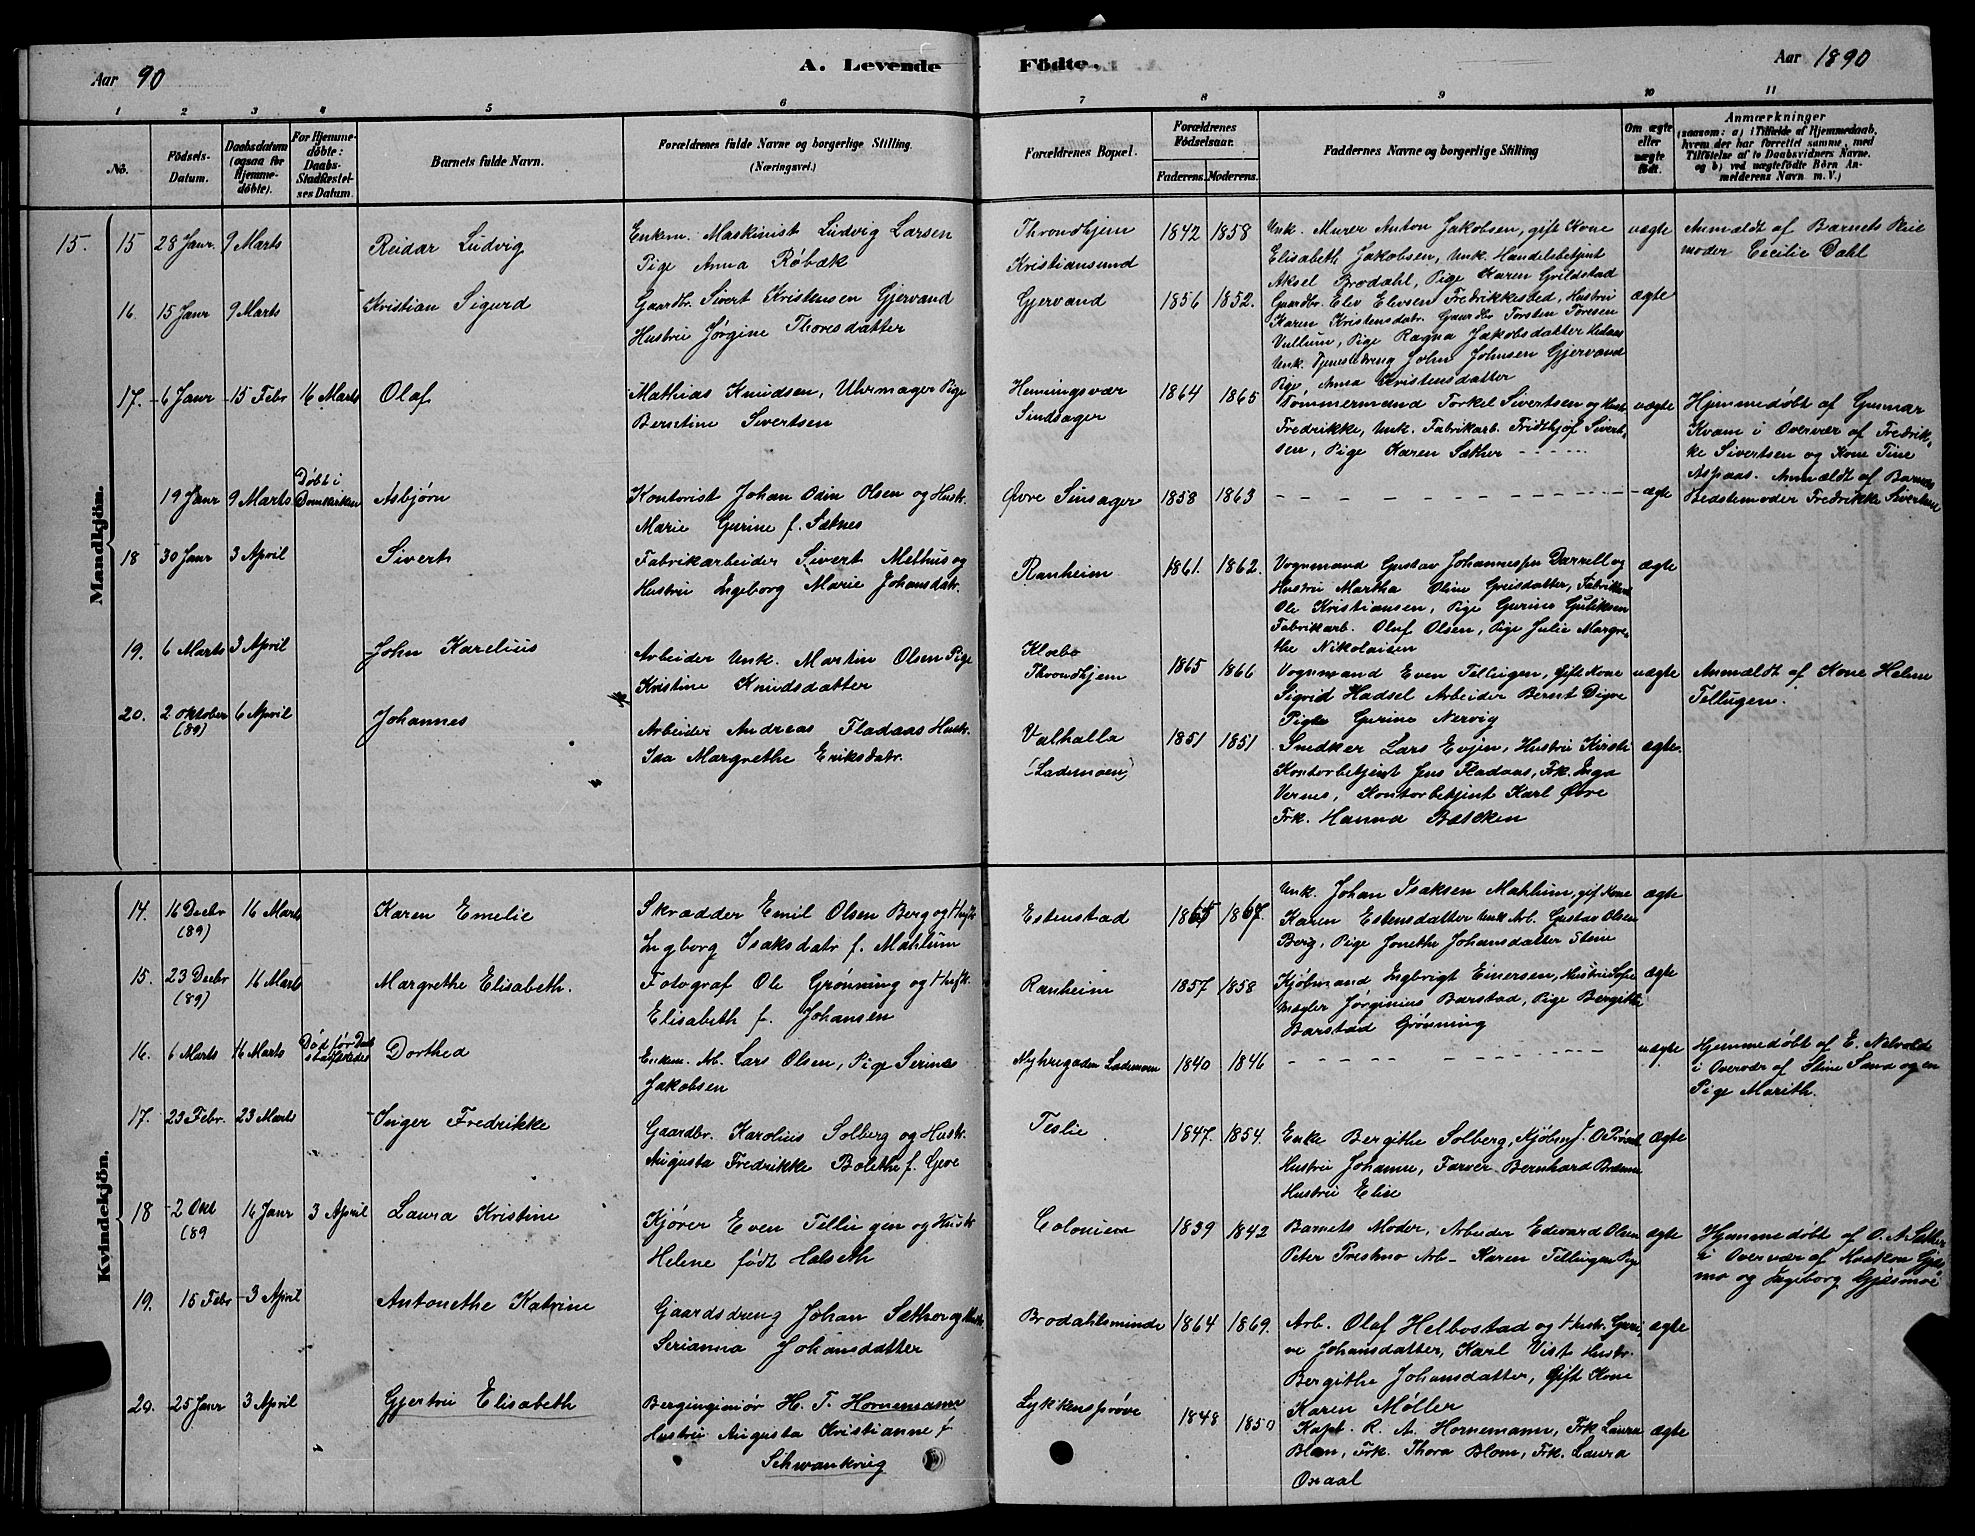 Aar 90
A. Levende Födte.
Aar 1890
1 2 3 4 5 6 7 8 9 10 11
No.
Födsels-Datum.
Daabsdatum (ogsaa for Hjemme-döbte).
For Hjemme-döbte: Daabs-Stadfæstel-ses Datum.
Barnets fulde Navn.
Forældrenes fulde Navne og borgerlige Stilling. (Næringsvei.)
Forældrenes Bopæl.
Forældrenes Födselsaar.
Faderens. Moderens.
Faddernes Navne og borgerlige Stilling
Om ægte eller uægte födt.
Anmærkninger
(saasom: a) i Tilfælde af Hjemmedaab,
hvem der har forrettet samme, med
Tilföielse af to Daabsvidners Navne,
og b) ved uægtefödte Börn An-
melderens Navn m. V.)
Mandkjön.
15. 15 28 Janr. 9 Marts
Reidar Ludvig
Enkm. Maskinist Ludvig Larsen
Pige Anna Röbæk
Throndhjem
Kristiansund
1842 1858
Unk. Murer Anton Jakobsen, gift Kone
Elisabeth Jakobsen, Unk. Handelsbetjent
Aksel Brodahl, Pige Karen Grildstad
uægte
Anmældt af Barnets Pleie
moder Cecilie Dahl
16. 15 Janr 9 Marts
Kristian Sigurd
Gaardbr. Sivert Kristensen Gjervand
Hustru Jørgine Thoresdatter
Gjervand
1856 1852.
Gaardbr. Elev Elevsen Fredrikkested, Hustru
Karen Kristensdatr. Gaardbr Torsten Toresen
Vullum, Pige Ragna Jakobsdatter
Unk. Tjenestedreng John Johnsen Gjervand
Pige, Anna Kristensdatter
ægte
17. 6 Janr 15 Febr 16 Marts
Olaf
Mathias Knudsen, Uhrmager Pige
Berntine Sivertsen
Henningsvær
Sindsager
1864 1865
Tømmermand Torkel Sivertsen og Hust.
Fredrikke, Unk. Fabrikarb. Fridthjof Sivert-
sen, Pige Karen Sæther
uægte
Hjemmedøbt af Gunnar
Kvam i Overvær af Fredrik-
ke Sivertsen og Kone Tine
Aspaas. Anmældt af Barnets
Bedstemoder Fredrikke Sivertsen
19 Janr 9 Marts Døbt i
Domkirken
Asbjørn
Kontorist Johan Odin Olsen og Hustr.
Marie Gurine f. Sætnes
Øvre Sinsager
1858 1863
ægte
18 30 Janr 3 April
Sivert
Fabrikarbeider Sivert Methus og
Hustru Ingeborg Marie Johansdatr.
Ranheim
1861. 1862.
Vognmand Gustav Johannesen Darrell og
Hustru Martha Oline Greisdatter,
Ole Kristiansen, Pige Gurine Guliksen
Fabrikarb. Oluf Olsen, Pige Julie Margre-
the Nikolaisen
ægte
19. 6 Marts 3 April
John Karelius
Arbeider Unk. Martin Olsen Pige
Kristine Knudsdatter
Klæbo
Throndhjem
1865 1866
Vognmand Even Tellugen, Gift Kone
Sigrid Hadsel Arbeider Bernt Digre
Pige Gurine Nervig
uægte
Anmældt af Kone Helene
Tellugen.
20. 2 Oktober
(89) 6 April
Johannes
Arbeider Andreas Fladaas Hustr.
Ida Margrethe Eriksdatr.
Valhalla
(Lademoen)
1851 1851
Snedker Lars Evjen, Hustru Kirsti
Kontorbetjent Jens Fladaas, Frk. Inga
Vernes, Kontorbetjent Karl Øvre
Frk. Hanna Bætcken
ægte.
Kvindekjön.
14. 16 Decbr
(89) 16 Marts
Karen Emelie
Skrædder Emil Olsen Berg og Hust.
Ingborg Isaksdatr f. Mahlum
Estenstad
1865 1867.
Unk. Johan Isaksen Mahlum, gift Kone
Karen Estensdatter Unk Arb. Gustav Olsen
Berg, Pige Jonetha Johansdatter Stene
ægte
15. 23 Decbr
(89) 16 Marts
Margrethe Elisabeth.
Fotograf Ole Grønning og Hust.
Elisabeth f. Johansen
Ranheim
1857 1858
Kjøbmand Ingbrigt Einersen, Hustru Sofie
Mægler Jørginius Barstad, Pige Bergithe
Barstad Grønning
ægte
16. 6 Marts 16 Marts Død før Daab
stadfæstedes
Dorthea
Enkem. Arb. Lars Olsen, Pige Serine
Jakobsen
Nyhregaden Lademoen
1840 1846
uægte
Hjemmedøbt af E. Nelvolde
i Overvær af Stine Sand og en
Pige Marith.
17. 23 Febr. 23 Marts
Inger Fredrikke
Gaardbr. Karolius Solberg og Hustr.
Augusta Fredrikke Bolethe f. Geve
Teslie
1847. 1854.
Enke Bergithe Solberg, Kjøbm J. O
Hustru Johanne, Farver Bernhard
Hustru Elise
Ægte
18 2 Okt
(89 16 Janr 3 April
Laura Kristine
Kjører Even Tellugen og Hustr
Helene født Halseth
Colonien
1839 1842
Barnets Moder, Arbeider Edevard Olsen
Peter Prestmo Arb- Karen Tellingen Pige
ægte
Hjemmedøbt af O. A. Sæther
i Overvær af Haakon Gjes-
mo og Ingeborg Gjesmoe
19. 15 Febr 3 April
Antonethe Katrine
Gaardsdreng Johan Sæther og Hust.
Serianna Johansdatter
Brodahlsminde
1864 1869.
Arb. Olaf Helbostad og Hustr. Guri-
ve Johansdatter, Karl Vist Hustr.
Bergithe Johansdatter, Gift Kone
Karen Møller
ægte
20. 25 Janr 3 April
Gjertru Elisabeth
Bergingeniør H. T. Hornemann
Hustru Augusta Kristianne f
Schwankrug
Lykkensprøve
1848 1850
Kapt. R. A. Hornemann, Frk Laura
Blom, Frk. Thora Blom, Frk. Laura
Oxaal
Ægte